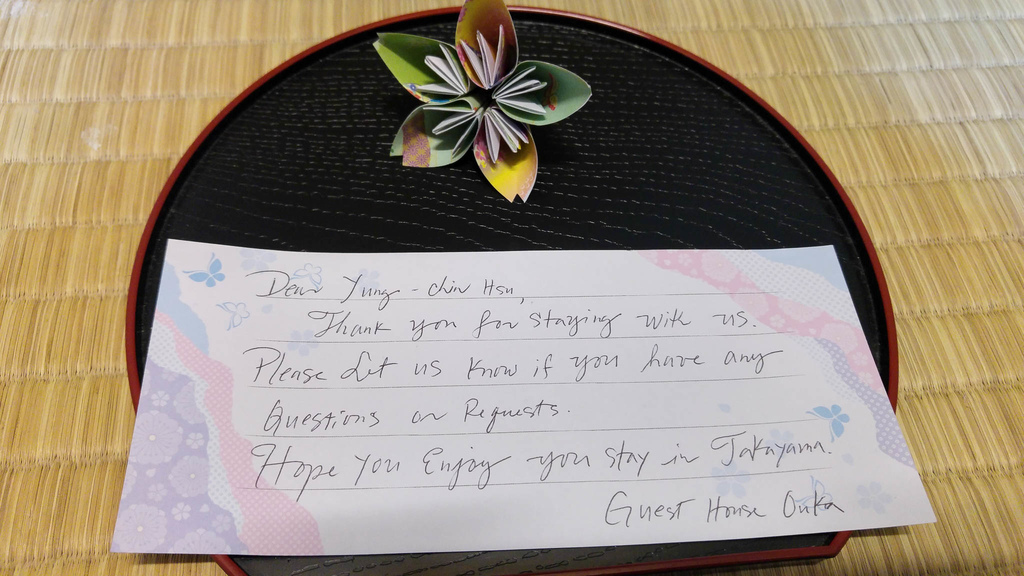 Dear Yung-chin Hsu,
Thank you for staying with us.
Please Let us know if you have any
Questions or Requests.
Hope You Enjoy you stay in Takayama.
Guest House Ouka